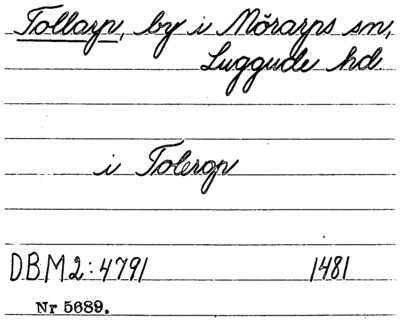 Tollarp, by i Mörarps sn,
Luggude hd.
i Tolerop
DBM2:4791 1481
Nr 5689.